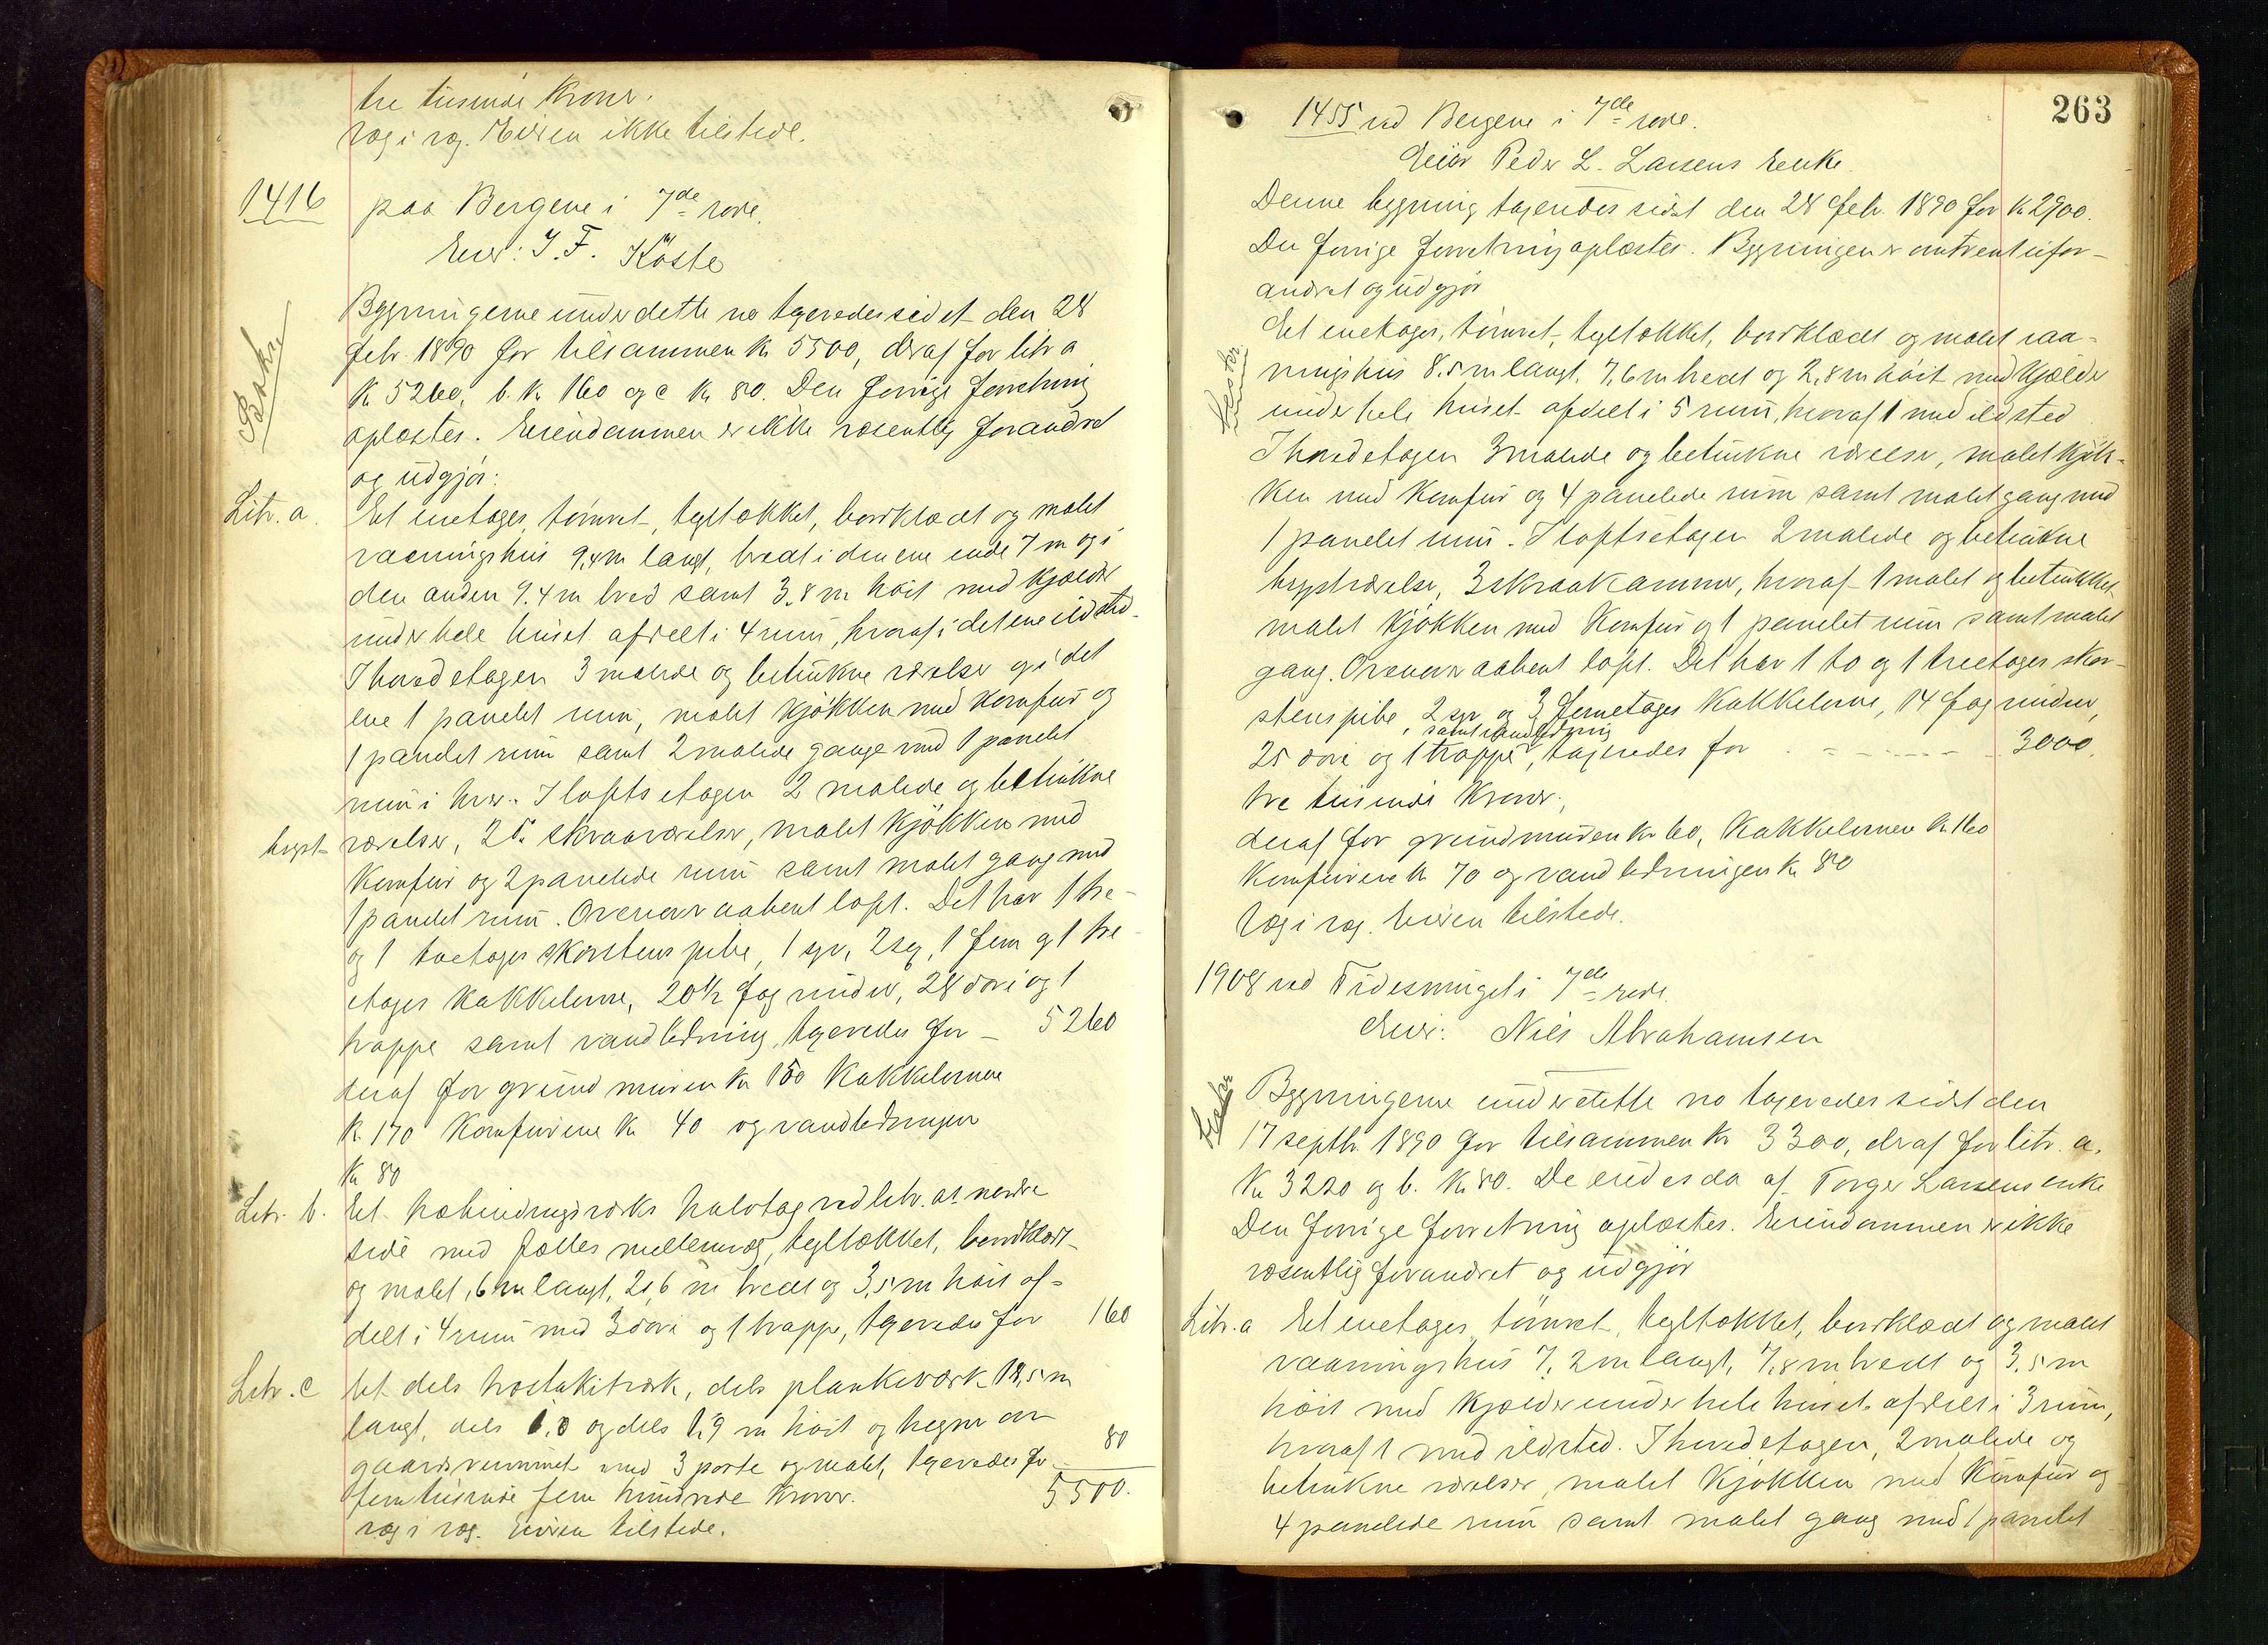 tre tusende Kroner.
Væg i væg. Eieren ikke tilstede.
1416 paa Bergene i 7de rode.
Eier: I. F. Köste
Bygningerne under dette no taxeredes sidst den 28
febr. 1890 for tilsammen Kr 5500, deraf for litr a
Kr 5260, b. Kr 160 og c Kr 80. Den forrige forretning
oplæstes. Eiendommen er ikke væsentlig forandret
og udgjør:
Litr. a. Et enetages, tømret, tegltækket, bordklædt og malet
vaaningshus 9,4 m langt, bredt i den ene ende 7 m og i
den anden 9.4 m bred samt 3,8 m høit med kjælder
under hele huset afdelt i 4 rum, hvoraf i det ene ildsted.
I hovedetagen 3 malede og betrukne værelser og i det
ene 1 panelet rum, malet kjøkken med komfur og
1 panelet rum samt 2 malede gange med 1 panelet
rum i hver. I loftsetagen 2 malede og betrukne
kvist- værelser, 2 do skraaværelser, malet kjøkken med
Komfur og 2 panelede rum samt malet gang med
1 panelet rum. Ovenover aabent loft. Det har 1 tre-
og 1 toetages skorstenspibe, 1 syv, 2 seg, 1 fem og 1 tre-
etages kakkelovne, 20 1/2 fag vinduer, 28 døre og 1
trappe samt vandledning, taxeredes for - 5260
deraf for grundmuren Kr 150 Kakkelovnene
Kr. 170 Komfurene Kr 40 og vandledningen
Kr 80
Litr. b. Et halvtag ved litr. as nordre
side med fælles mellemvæg, tegltækket, bordklædt
og malet, 6 m langt, 2,6 m bredt og 3,5 m høit af-
delt i 4 rum med 3 døre og 1 trappe, taxeredes for 160
Litr. c Et dels hvostakitværk, dels plankeværk 18,5 m
langt, dels og dels 1,9 m høit og hegner om
gaardsrummet med 3 porte og malet, taxeredes for 80
femtusende fem hundrede Kroner. 5500.
væg i væg. Eieren tilstede.
263
1455 ved Bergene i 7de rode.
Eier Peder L. Larsens Enke
Denne bygning taxeredes sidst den 28 febr. 1890 for Kr 2900.
Den forrige forretning oplæstes. Bygningen er omtrent ufor-
andret og udgjør
Et enetages, tømret, tegltækket, bordklædt og malet vaa-
ningshus 8.5 m langt, 7,6 m bredt og 2,8 m høit med kjælder
under hele huset afdelt i 5 rum, hvoraf 1 med ildsted
I hovedetagen 3 malede og betrukne værelser, malet kjøk-
ken med Komfur og 4 panelede rum samt malet gang med
1 panelet rum. I loftsetagen 2 malede og betrukne
kvistværelser, 3 skraakammer, hvoraf 1 malet og betrukket
malet kjøkken med Komfur og 1 panelet rum samt malet
gang. Ovenover aabent loft. Det har 1 to og 1 treetages skor-
stenspibe, 2 syv og 3 femetages Kakkelovne, 14 fag vinduer,
samt vandledning
25 døre og 1 trappe, taxeredes for - - - - - - 3000.
tre tusende Kroner,
deraf for grundmuren Kr 60, Kakkelovnene Kr 160
Komfurene Kr 70 og vandledningen Kr 80
Væg i væg. Eieren tilstede.
1908 ved Tidesmuget i 7de rode.
Eier: Nils Abrahamsen
Bygningerne under dette no taxeredes sidst den
17 septbr. 1890 for tilsammen Kr 3300, deraf for litr. a.
Kr 3220 og b. Kr 80. De eiedes da af Torger Larsens enke
Den forrige forretning oplæstes. Eiendommen er ikke
væsentlig forandret og udgjør
Litr. a Et enetages, tømret, tegltækket, bordklædt og malet
vaaningshus 7,2 m langt, 7,8 m bredt og 3,5 m
høit med kjælder under hele huset afdelt i 3 rum,
hvoraf 1 med ildsted. I hovedetagen, 2 malede og
betrukne værelser, malet kjøkken med Komfur og
4 panelede rum samt malet gang med 1 panelet